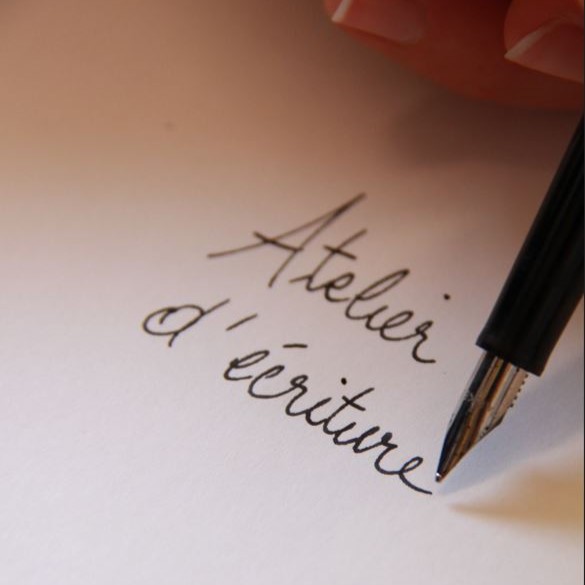 Atelier
d'écriture